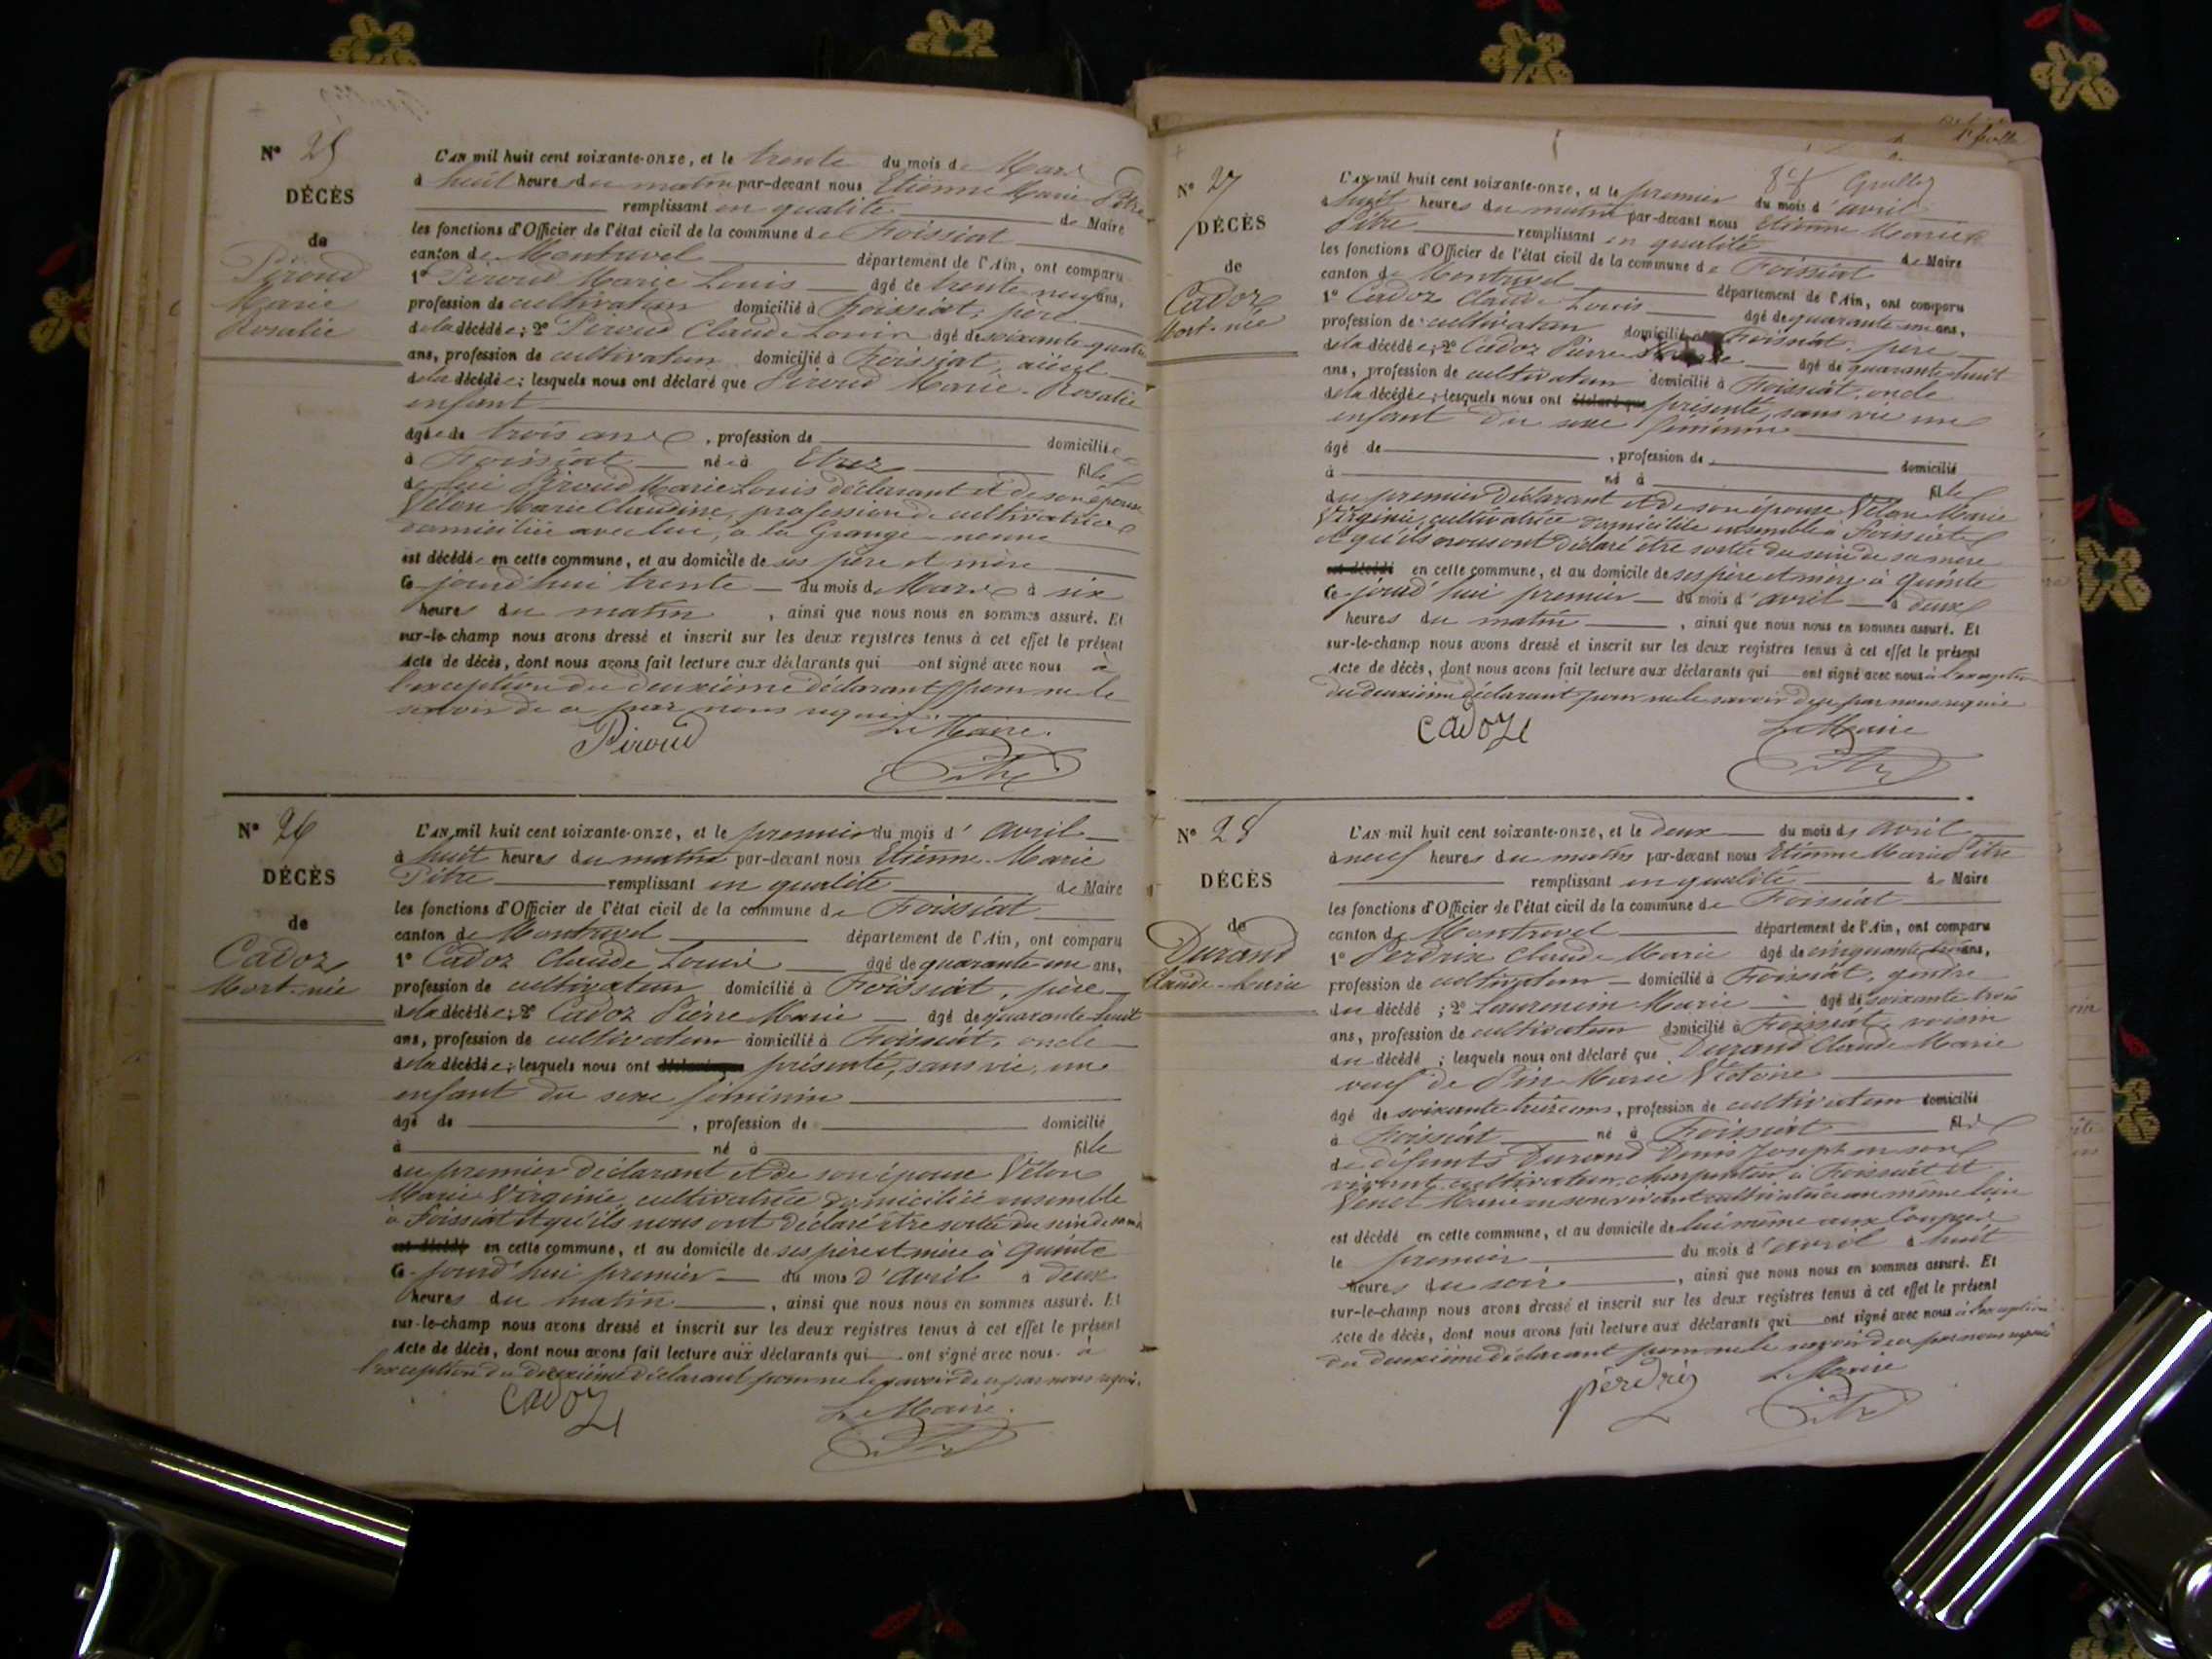 N° 25
DÉCÈS
de
Piroud
Marie
Rosalie
L'AN mil huit cent soixante-onze, et le trente du mois de Mars
à huit heures du matin par-devant nous Etienne Marie Pitre
remplissant en qualité de Maire
les fonctions d'Officier de l'état civil de la commune de Foissiat
canton de Montrevel département de l'Ain, ont comparu
1° Piroud Marie Louis âgé de trente neuf ans,
profession de cultivateur domicilié à Foissiat, père
de la décédée; 2° Piroud Claude Louis âgé de soixante quatre
ans, profession de cultivateur domicilié à Foissiat, aïeul
de la décédée; lesquels nous ont déclaré que Piroud Marie-Rosalie
enfant
âgée de trois ans, profession de domiciliée
à Foissiat née à Etrez fille
de lui Piroud Marie Louis déclarant et de son épouse
Vélon Marie Claudine, profession de cultivatrice
domiciliée avec lui, à la Grange-neuve
est décédée en cette commune, et au domicile de ses père et mère
Ce jourd'hui trente du mois de Mars à six
heures du matin, ainsi que nous nous en sommes assuré. Et
sur-le-champ nous avons dressé et inscrit sur les deux registres tenus à cet effet le présent
Acte de décès, dont nous avons fait lecture aux déclarants qui ont signé avec nous à
l'exception du deuxième déclarant pour ne le
savoir de ce par nous requis.
Le Maire.
Piroud
Pitre
N° 26
DÉCÈS
de
Cadoz
Mort-née
L'AN mil huit cent soixante-onze, et le premier du mois d'avril
à huit heures du matin par-devant nous Etienne-Marie
Pitre remplissant en qualité de Maire
les fonctions d'Officier de l'état civil de la commune de Foissiat
canton de Montrevel département de l'Ain, ont comparu
1° Cadoz Claude Louis âgé de quarante un ans,
profession de cultivateur domicilié à Foissiat, père
de la décédée; 2° Cadoz Pierre Marie âgé de quarante huit
ans, profession de cultivateur domicilié à Foissiat, oncle
de la décédée; lesquels nous ont déclaré que présenté, sans vie, une
enfant du sexe féminin
âgé de , profession de domicilié
à né à fille
du premier déclarant et de son épouse Vélon
Marie Virginie, cultivatrice domiciliée ensemble
à Foissiat et qu'ils nous ont déclaré être sortie du sein de sa mère
est décédé en cette commune, et au domicile de ses père et mère à Quinte
Ce jourd'hui premier du mois d'avril à deux
heures du matin, ainsi que nous nous en sommes assuré. Et
sur-le-champ nous avons dressé et inscrit sur les deux registres tenus à cet effet le présent
Acte de décès, dont nous avons fait lecture aux déclarants qui ont signé avec nous à
l'exception du deuxième déclarant pour ne le savoir de ce par nous requis.
Cadoz
Le Maire.
Pitre
1e feuille
8e Grille
N° 27
DÉCÈS
de
Cadoz
Mort-née
L'AN mil huit cent soixante-onze, et le premier du mois d'avril
à huit heures du matin par-devant nous Etienne Marie
Pitre remplissant en qualité de Maire
les fonctions d'Officier de l'état civil de la commune de Foissiat
canton de Montrevel département de l'Ain, ont comparu
1° Cadoz Claude Louis âgé de quarante un ans,
profession de cultivateur domicilié à Foissiat, père
de la décédée; 2° Cadoz Pierre Marie âgé de quarante huit
ans, profession de cultivateur domicilié à Foissiat, oncle
de la décédée; lesquels nous ont déclaré que présenté, sans vie une
enfant du sexe féminin
âgé de , profession de domicilié
à né à fille
du premier déclarant et de son épouse Vélon Marie
Virginie, cultivatrice domiciliée ensemble à Foissiat
et qu'ils nous ont déclaré être sortie du sein de sa mère
est décédé en cette commune, et au domicile de ses père et mère à Quinte
Ce jourd'hui premier du mois d'avril à deux
heures du matin, ainsi que nous nous en sommes assuré. Et
sur-le-champ nous avons dressé et inscrit sur les deux registres tenus à cet effet le présent
Acte de décès, dont nous avons fait lecture aux déclarants qui ont signé avec nous à l'exception
du deuxième déclarant pour ne le savoir de ce par nous requis
Cadoz
Le Maire
Pitre
N° 28
DÉCÈS
de
Durand
Claude-Marie
L'AN mil huit cent soixante-onze, et le deux du mois d'avril
à neuf heures du matin par-devant nous Etienne Marie Pitre
remplissant en qualité de Maire
les fonctions d'Officier de l'état civil de la commune de Foissiat
canton de Montrevel département de l'Ain, ont comparu
1° Perdrix Claude Marie âgé de cinquante ans,
profession de cultivateur domicilié à Foissiat, gendre
du décédé; 2° Laurencin Marie âgé de soixante trois
ans, profession de cultivateur domicilié à Foissiat, voisin
du décédé; lesquels nous ont déclaré que Durand Claude Marie
veuf de Pin Marie Victoire
âgé de soixante treize ans, profession de cultivateur domicilié
à Foissiat né à Foissiat fils
de défunts Durand Denis Joseph en son
vivant cultivateur charpentier à Foissiat et
Venet Marie en son vivant cultivatrice au même lieu
est décédé en cette commune, et au domicile de lui même aux
le premier du mois d'avril à huit
heures du soir, ainsi que nous nous en sommes assuré. Et
sur-le-champ nous avons dressé et inscrit sur les deux registres tenus à cet effet le présent
Acte de décès, dont nous avons fait lecture aux déclarants qui ont signé avec nous à l'exception
du deuxième déclarant pour ne le savoir de ce par nous requis
Le Maire
perdrix
Pitre